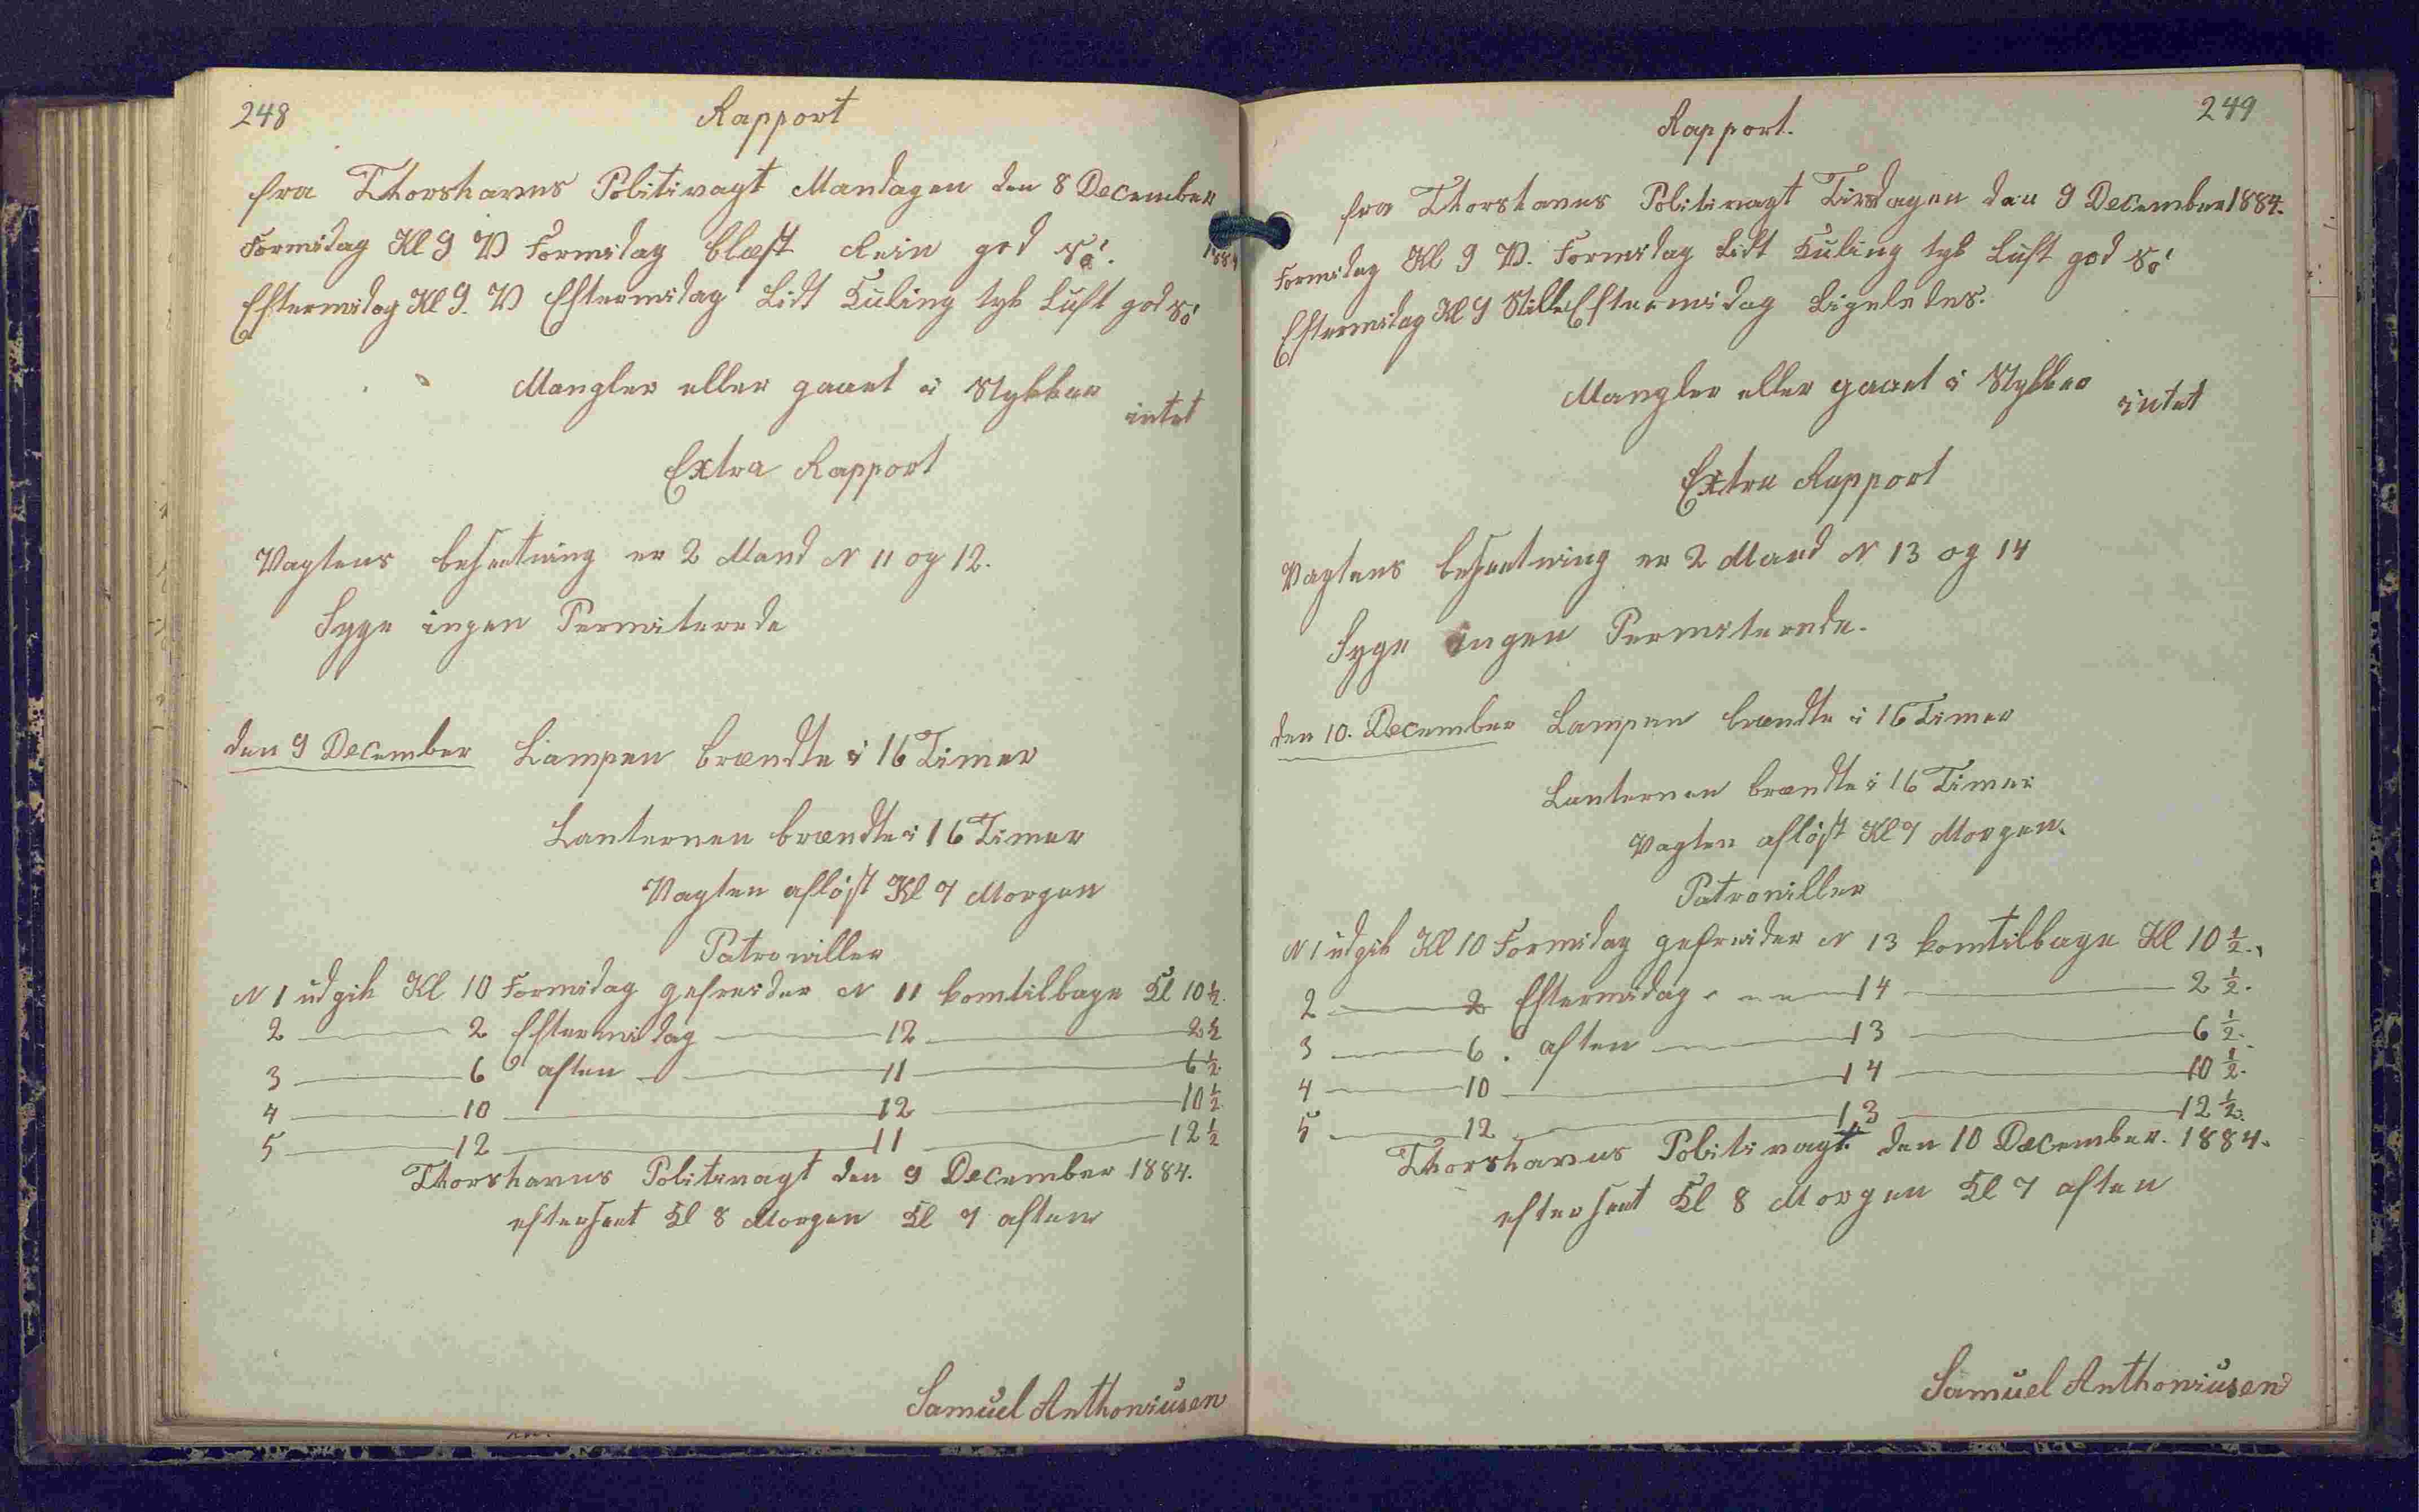 248
Rapport
fra Thorshavns Politivagt Mandagen den 8 December 1884
Formidag Kl 9 V Formidag blæst Rein god Sø.
Eftermidag Kl 9. V Eftermidag Lidt Kuling tyk Luft god Sø
Mangler eller gaaet i Stykker
intet
Extra Rapport
Vagtens besætning er 2 Mand N 11 og 12.
Syge ingen Permiterede
den 9 December Lampen brændte i 16 Timer
Lanternen brændte i 16 Timer
Vagten afløst Kl 7 Morgen
Patroniller
N 1 udgik Kl 10 Formidag gefreider N 11 komtilbage Kl 10 ½.
2 — 2 Eftermidag — 12 — 2 ½
3 — 6 aften — 11 — 6 ½
4 — 10 — 12 — 10 ½
5 — 12 — 11 — 12 ½
Thorshavns Politivagt den 9 December 1884.
efterseet Kl 8 Morgen Kl 7 aften
Samuel Anthoniusen
249
Rapport.
fra Thorshavns Politivagt Tirsdagen den 9 December 1884.
Formidag Kl 9 V. Formidag Lidt Kuling tyk Luft god Sø
Eftermidag Kl 9 Stille Eftermidag Ligeledes.
Mangler eller gaaet i Stykker
intet
Extra Rapport
Vagtens besætning er 2 Mand N 13 og 14
Syge ingen Permiterede.
den 10. December Lampen brændte i 16 Timer
Lanternen brændte i 16 Timer
Vagten afløst Kl 7 Morgen.
Patroniller
N 1 udgik Kl 10 Formidag gefreider N 13 komtilbage Kl 10 ½.
2 — 2 Eftermidag — 14 — 2 ½.
3 — 6. aften — 13 — 6 ½.
4 — 10 — 14 — 10 ½.
5 — 12 — 13 — 12 ½.
Thorshavns Politivagt den 10 December. 1884.
efterseet Kl 8 Morgen Kl 7 aften
Samuel Anthoniusen